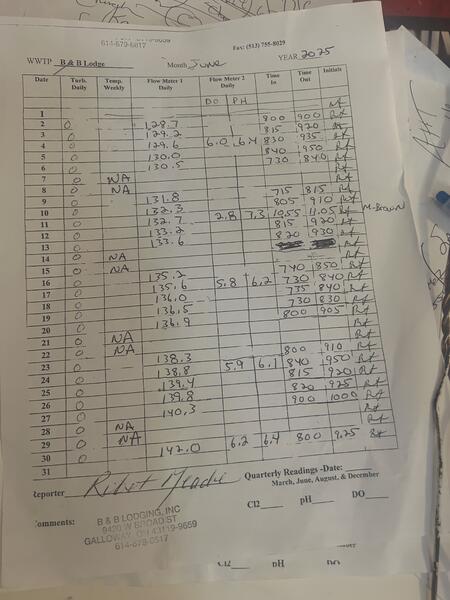 614-679-6617
Fax: (513) 755-8029
WWTP B & B Lodge Month June YEAR 2025
Date Turb. Daily Temp. Weekly Flow Meter 1 Daily Flow Meter 2 Daily Time In Time Out Initials
DO PH
1 Rt
2 0 128.7 800 900 Rt
3 0 129.2 815 920 Rt
4 0 129.6 6.0 6.4 830 935 Rt
5 0 130.0 840 950 Rt
6 0 130.5 730 840 Rt
7 0 NA Rt
8 0 NA Rt
9 0 131.8 715 815 Rt
10 0 132.3 805 910 Rt
11 0 132.7 2.8 7.3 10:55 11:05 Rt M-Brown
12 0 133.2 815 920 Rt
13 0 133.6 820 930 Rt
14 0 NA Rt
15 0 NA Rt
16 0 135.2 740 850 Rt
17 0 135.6 5.8 6.2 730 840 Rt
18 0 136.0 735 840 Rt
19 0 136.5 730 830 Rt
20 0 136.9 800 905 Rt
21 0 NA Rt
22 0 NA Rt
23 0 138.3 800 910 Rt
24 0 138.8 5.9 6.1 840 950 Rt
25 0 139.4 815 920 Rt
26 0 139.8 820 925 Rt
27 0 140.3 900 1000 Rt
28 0 NA Rt
29 0 NA Rt
30 0 142.0 6.2 6.4 800 9.25 Rt
31
Reporter
Quarterly Readings -Date:
March, June, August, & December
Cl2 pH DO
Comments:
B & B LODGING, INC
9420 W BROAD ST
GALLOWAY, OH 43119-9659
614-878-0517
Cl2 pH DO